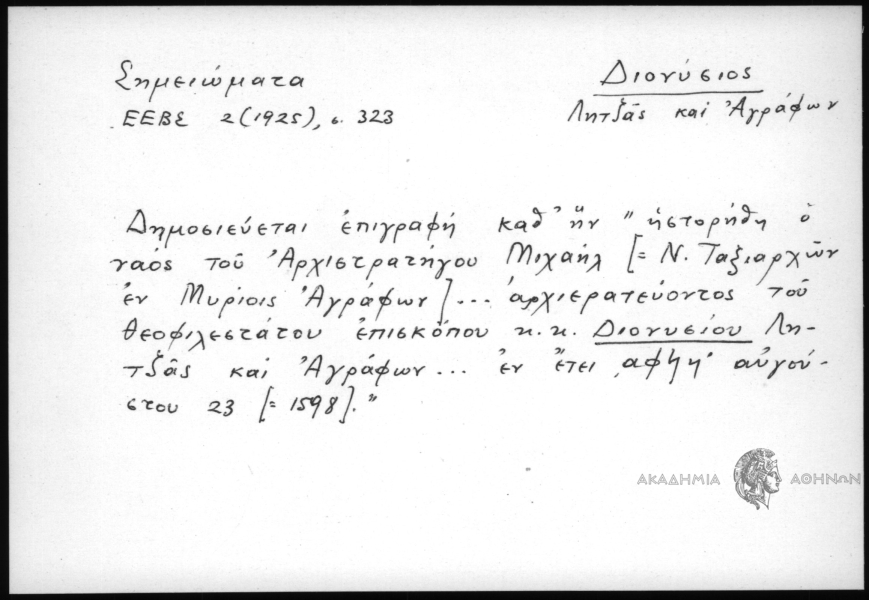 Σημειώματα
ΕΕΒΣ 2(1925), σ. 323
Διονύσιος
Λητζᾶς καὶ Ἀγράφων
Δημοσιεύεται ἐπιγραφή καθ' ἥν "ἡστορήθη ὁ
ναὸς τοῦ Ἀρχιστρατήγου Μιχαὴλ [= Ν. Ταξιαρχῶν
ἐν Μυρίσις Ἀγράφων]... ἀρχιερατεύοντος τοῦ
θεοφιλεστάτου ἐπισκόπου κ.κ. Διονυσίου Λη-
τζᾶς καὶ Ἀγράφων... ἐν ἔτει ͵αφϟη' αὐγού-
στου 23 [= 1598]."
ΑΚΑΔΗΜΙΑ ΑΘΗΝΩΝ